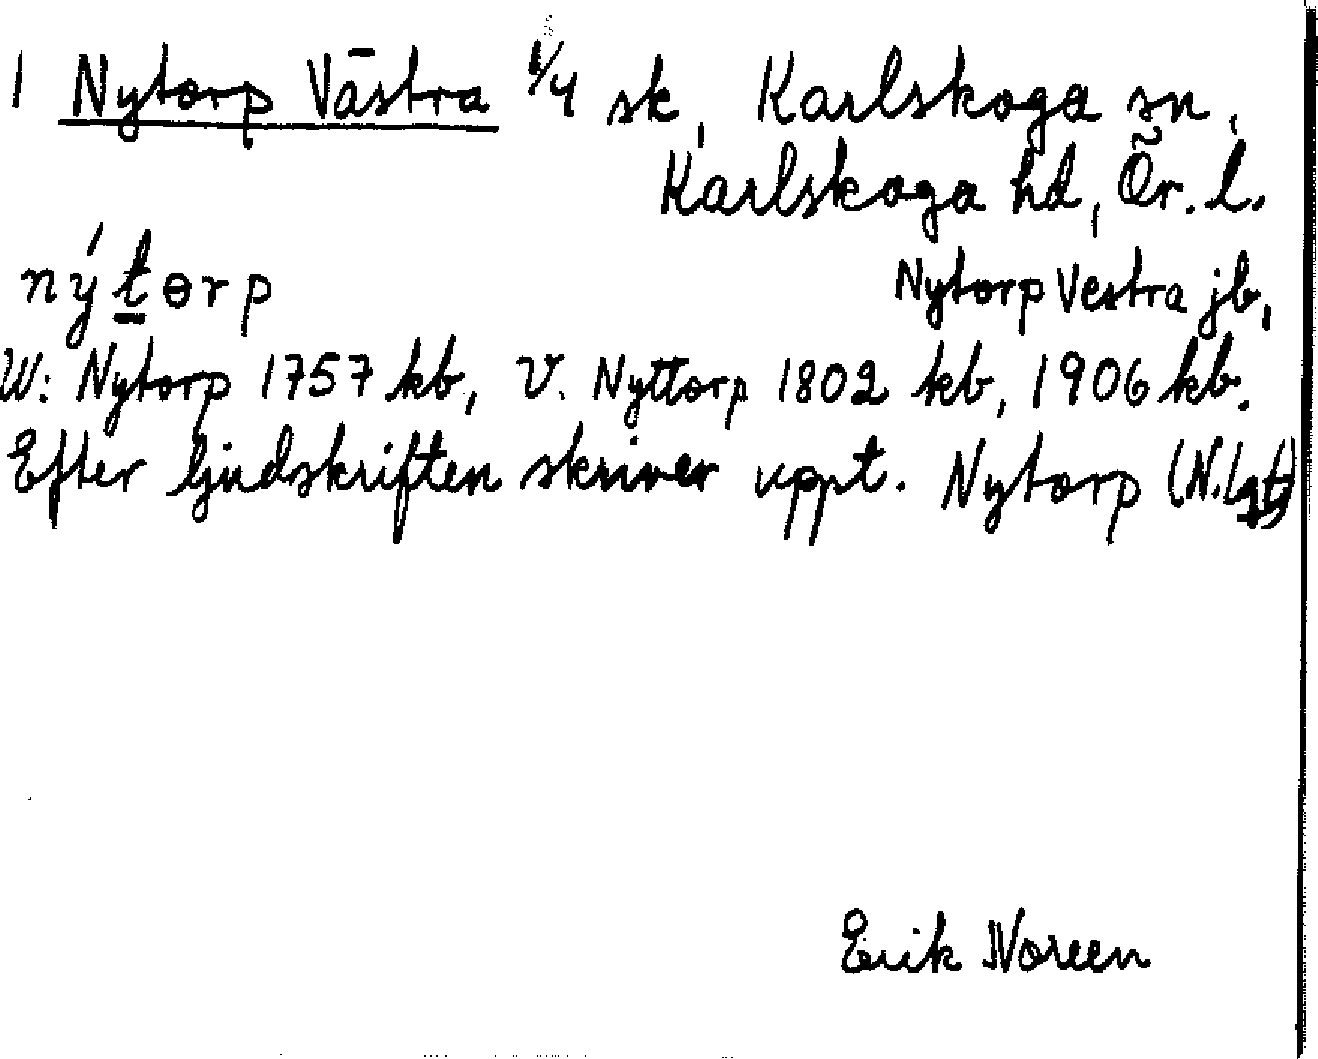 1 Nytorp Västra 1/4 sk, Karlskoga sn,
Karlskoga hd, Ör. l.
nýtɵrp
Nytorp Vestra jb,
W: Nytorp 1757 kb, V. Nyttorp 1802 kb, 1906 kb.
Efter ljudskriften skriver uppt. Nytorp
Erik Noreen